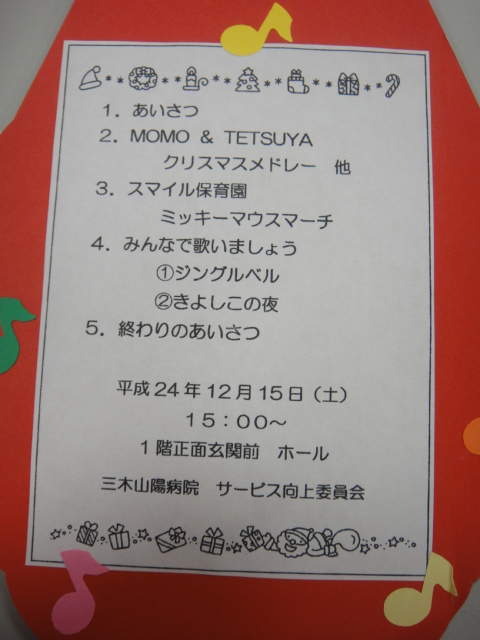 １．あいさつ
２．MOMO & TETSUYA
クリスマスメドレー 他
３．スマイル保育園
ミッキーマウスマーチ
４．みんなで歌いましょう
①ジングルベル
②きよしこの夜
５．終わりのあいさつ
平成24年12月15日（土）
15：00～
１階正面玄関前 ホール
三木山陽病院 サービス向上委員会